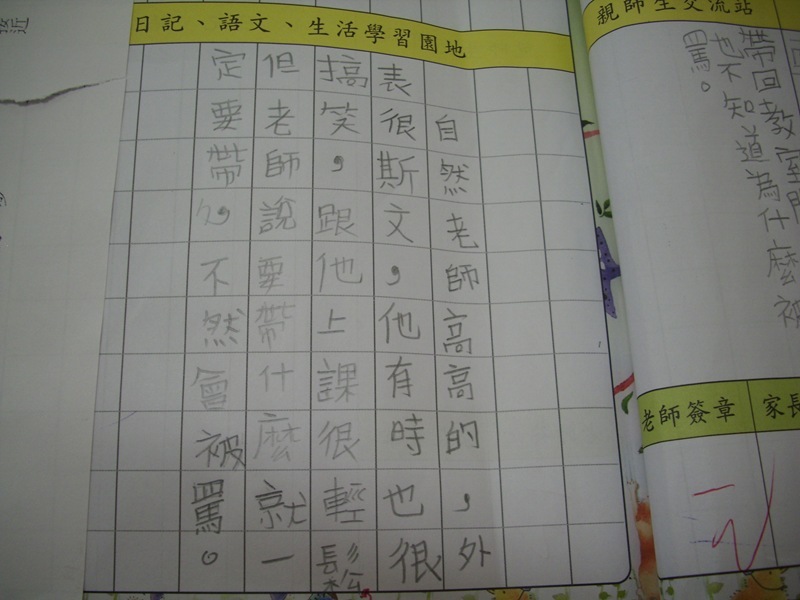 日記、語文、生活學習園地
自然老師高高的，外
表很斯文，他有時也很
搞笑，跟他上課很輕鬆
但老師說要帶什麼就一
定要帶，不然會被
罵。
親師生交流站
帶回教室門
也不知道為什麼被
罵。
老師簽章
家長
接近